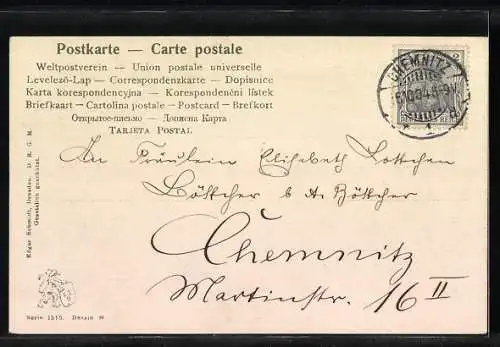 Postkarte — Carte postale
Weltpostverein — Union postale universelle
Levelező-Lap — Correspondenzkarte — Dopisnice
Karta korespondencyjna — Korespondenční lístek
Briefkaart — Cartolina postale — Postcard — Brefkort
Открытое письмо — Дописна Карта
TARJETA POSTAL
CHEMNITZ
An Fräulein Elisabeth Lottchen
Böttcher b A. Böttcher
Chemnitz
Martinstr. 16 II
Edgar Schmidt, Dresden. D. R. G. M.
Gesetzlich geschützt.
Serie 1515. Dessin